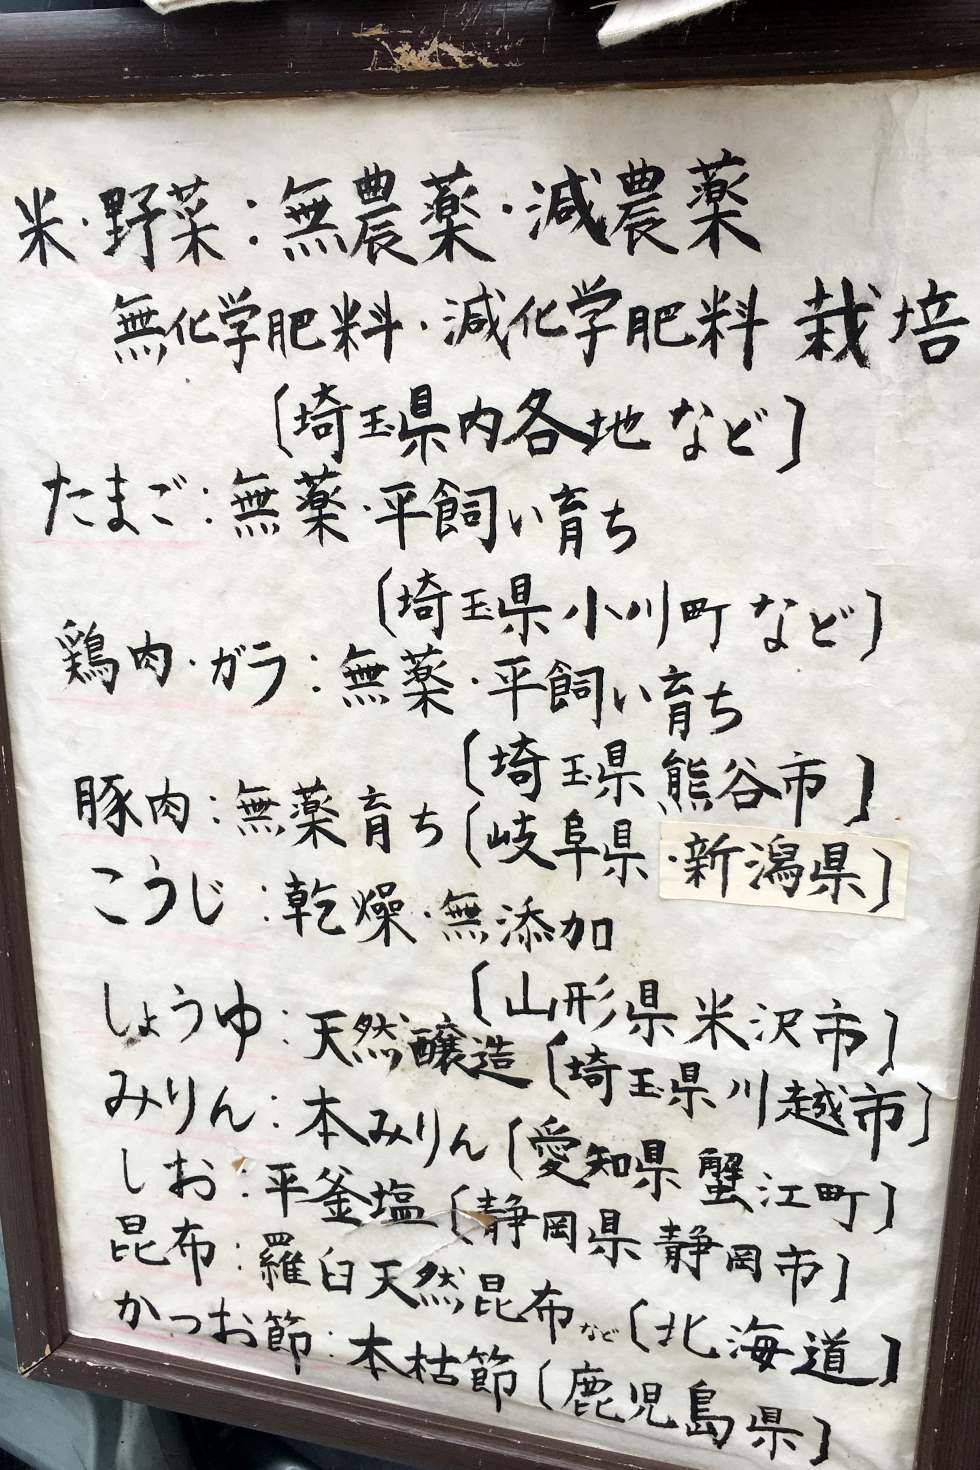 米・野菜：無農薬・減農薬
無化学肥料・減化学肥料 栽培
〔埼玉県内各地 など〕
たまご：無薬・平飼い育ち
〔埼玉県 小川町 など〕
鶏肉・ガラ：無薬・平飼い育ち
〔埼玉県 熊谷市〕
豚肉：無薬育ち〔岐阜県・新潟県〕
こうじ：乾燥・無添加
〔山形県 米沢市〕
しょうゆ：天然醸造〔埼玉県川越市〕
みりん：本みりん〔愛知県 蟹江町〕
しお：平釜塩〔静岡県 静岡市〕
昆布：羅臼天然昆布など〔北海道〕
かつお節：本枯節〔鹿児島県〕